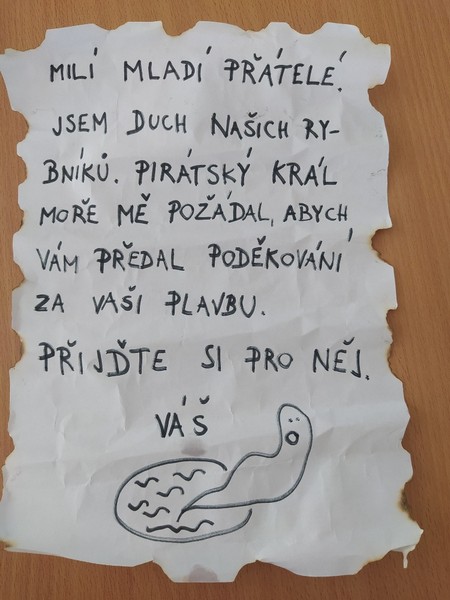 MILÍ MLADÍ PŘÁTELÉ!
JSEM DUCH NAŠICH RY-
BNÍKŮ. PIRÁTSKÝ KRÁL
MOŘE MĚ POŽÁDAL, ABYCH
VÁM PŘEDAL PODĚKOVÁNÍ
ZA VAŠI PLAVBU.
PŘIJĎTE SI PRO NĚJ.
VÁŠ